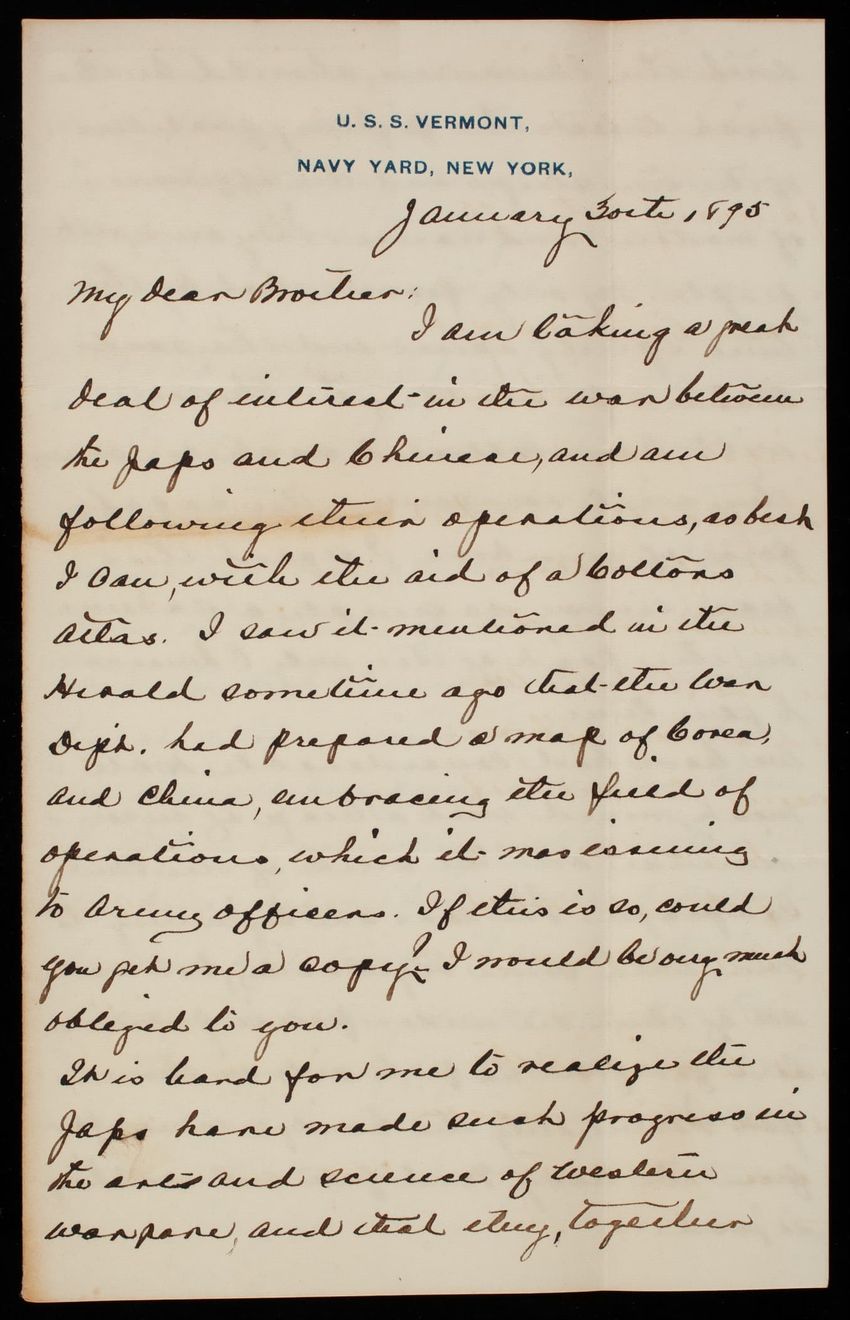 U. S. S. VERMONT,
NAVY YARD, NEW YORK,
January 30th, 1895
My dear Brother:
I am taking a great
deal of interest in the war between
the Japs and Chinese, and am
following their operations, as best
I can, with the aid of a Coltons
Atlas. I saw it mentioned in the
Herald sometime ago that the War
Dept. had prepared a map of Corea,
and China, embracing the field of
operations, which it was issuing
to Army officers. If this is so, could
you get me a copy? I would be very much
obliged to you.
It is hard for me to realize the
Japs have made such progress in
the arts and science of Western
warfare, and that they, together